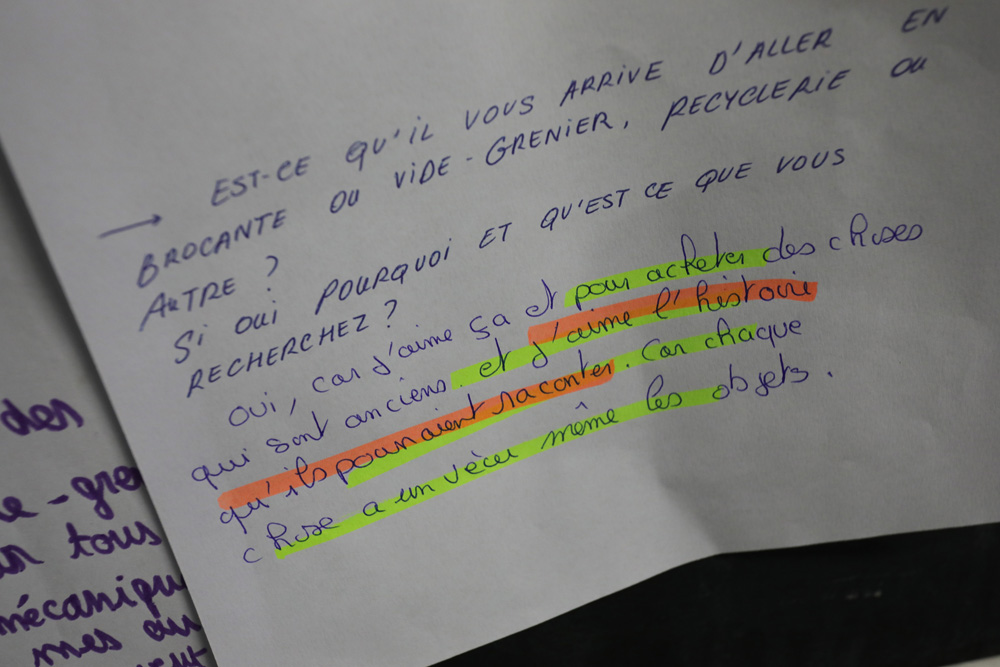 → EST-CE QU'IL VOUS ARRIVE D'ALLER EN
BROCANTE OU VIDE-GRENIER, RECYCLERIE OU
AUTRE ?
SI OUI POURQUOI ET QU'EST CE QUE VOUS
RECHERCHEZ ?
OUI, car j'aime ça et pour acheter des choses
qui sont anciens. et j'aime l'histoire
qu'ils pourraient raconter. Car chaque
chose a un vécu même les objets.
des
e-gre
tous
mécaniqu
mes